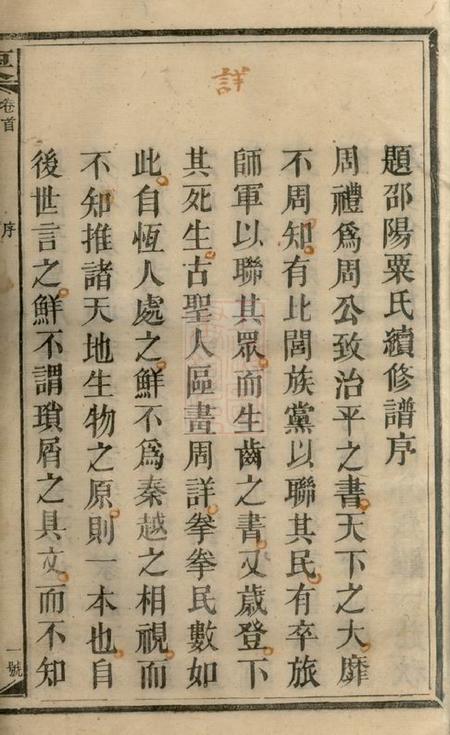 詳
題邵陽粟氏續修譜序
周禮爲周公致治平之書天下之大靡
不周知有比閭族黨以聯其民有卒旅
師軍以聯其眾而生齒之書又歲登下
其死生古聖人區畫周詳拳拳民數如
此自恆人處之鮮不爲秦越之相視而
不知推諸天地生物之原則一本也自
後世言之鮮不謂瑣屑之具文而不知
卷首
序
一號